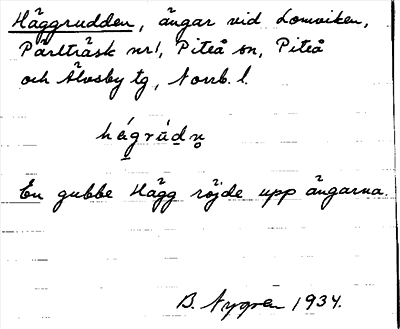 Häggrudden, ängar vid Lomviken,
Pärlträsk nr 1, Piteå sn, Piteå
och Älvsby tg, Norrb. l.
hágrúdn̥
En gubbe Hägg röjde upp ängarna.
B. Nygren 1934.